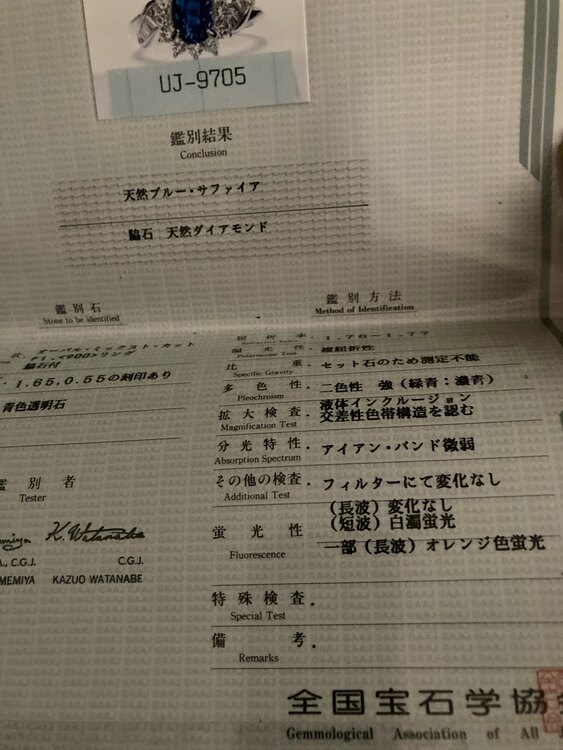 UJ-9705
鑑別結果
Conclusion
天然ブルー・サファイア
脇石 天然ダイアモンド
鑑別石
Stone to be identified
鑑別方法
Method of Identification
オーバル・ミックスト・カット
Pt.<900>リング
脇石付
1.65,0.55の刻印あり
青色透明石
屈折率 . 1.76~1.77
偏光性 . 複屈折性
Polariscope Test
比重 . セット石のため測定不能
Specific Gravity
多色性 . 二色性 強(緑青:濃青)
Pleochroism
拡大検査 . 液体インクルージョン
交差性色帯構造を認む
Magnification Test
分光特性 . アイアン・バンド微弱
Absorption Spectrum
その他の検査 . フィルターにて変化なし
Additional Test
蛍光性 . (長波)変化なし
(短波)白濁蛍光
一部(長波)オレンジ色蛍光
Fluorescence
特殊検査 .
Special Test
備考 .
Remarks
鑑別者
Tester
K. Watanabe
C.G.J. C.G.J.
MEMIYA KAZUO WATANABE
全国宝石学協
Gemmological Association of All